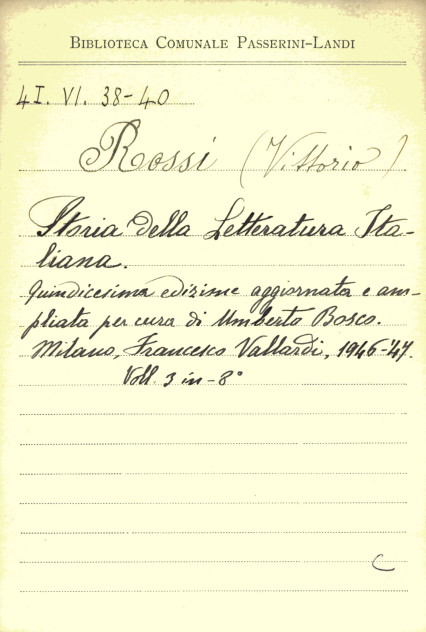 BIBLIOTECA COMUNALE PASSERINI-LANDI
4I. VI. 38-40
Rossi (Vittorio)
Storia della Letteratura Ita-
liana.
Quindicesima edizione aggiornata e am-
pliata per cura di Umberto Bosco.
Milano, Francesco Vallardi, 1946-'47.
Voll. 3 in-8°
C